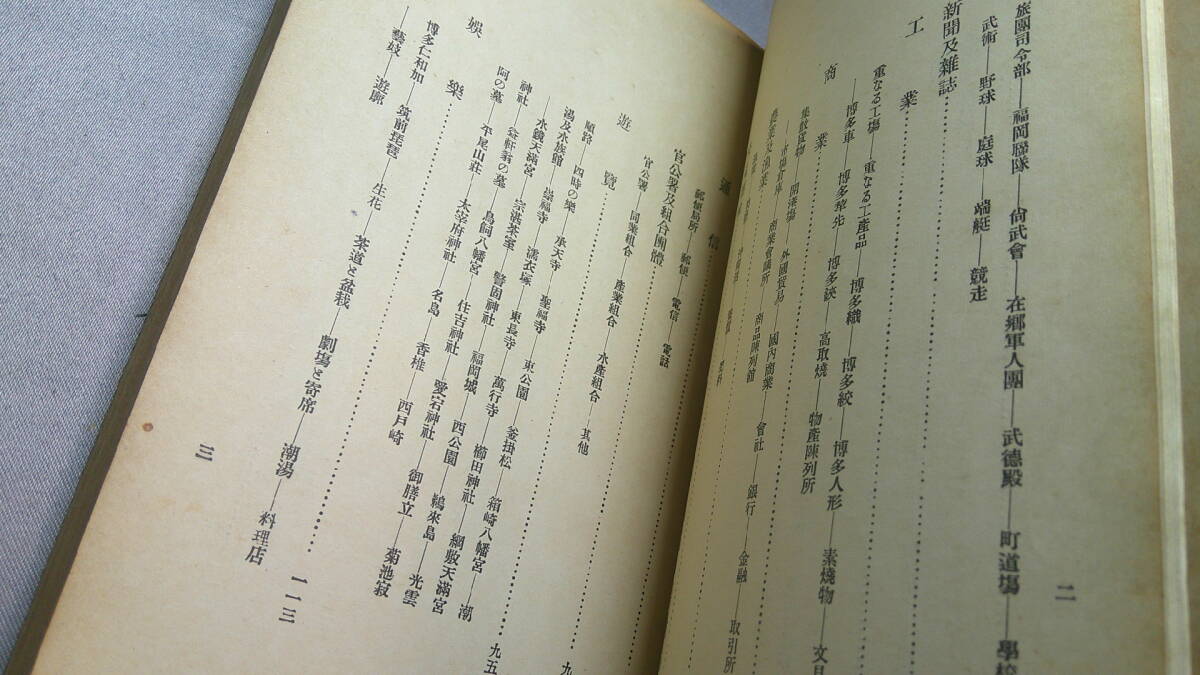 旅團司令部――福岡聯隊――尙武會――在鄕軍人團――武德殿――町道塲――學校
武術――野球――庭球――端艇――競走
新聞及雜誌
工業
重なる工塲――重なる工產品――博多織――博多絞――博多人形――素燒物――文具
――博多車――博多莖先――博多鋏――高取燒――物產陳列所
商業
集散貨物――開港塲――外國貿易――國內商業――會社――銀行――金融――取引所
――市塲倉庫――商業會議所――商品陳列舘
農業及漁業
通信
郵便局所――郵便――電信――電話
官公署及組合團體
官公署――同業組合――產業組合――水產組合――其他
遊覽
順路――四時の樂――承天寺――聖福寺――東公園――釜掛松――箱崎八幡宮――潮
湯及水族館――崇福寺――濡衣塚――東長寺――萬行寺――櫛田神社――綱敷天滿宮
――水鏡天滿宮――宗湛茶室――警固神社――福岡城――西公園――鵜來島――光雲
神社――益軒翁の墓――鳥飼八幡宮――住吉神社――愛宕神社――御膳立――菊池寂
阿の墓――平尾山莊――太宰府神社――名島――香椎――西戸崎
九五
娛樂
一一三
博多仁和加――筑前琵琶――生花――茶道と盆栽――劇塲と寄席――潮湯――料理店
――藝妓――遊廓
二
三